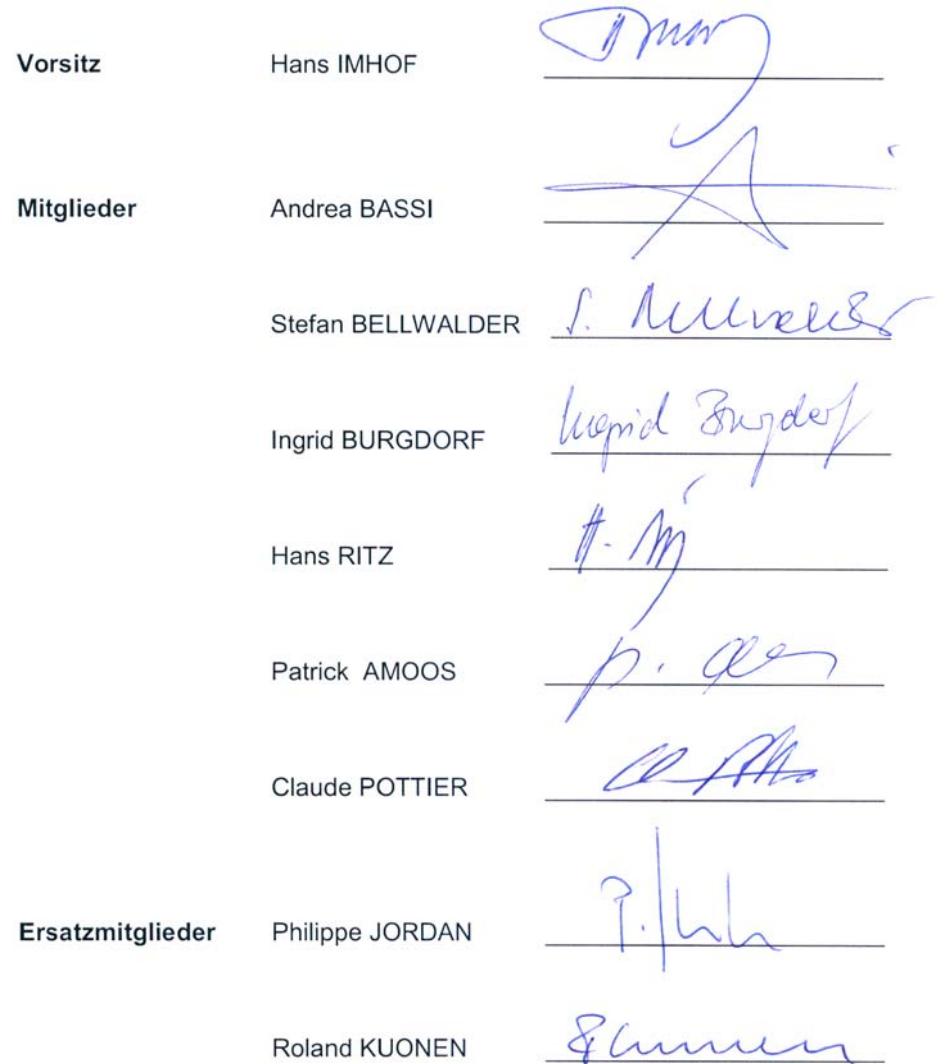 Vorsitz Hans IMHOF
Mitglieder Andrea BASSI
Stefan BELLWALDER S. Bellwalder
Ingrid BURGDORF Ingrid Burgdorf
Hans RITZ H.
Patrick AMOOS P.
Claude POTTIER
Ersatzmitglieder Philippe JORDAN P.
Roland KUONEN